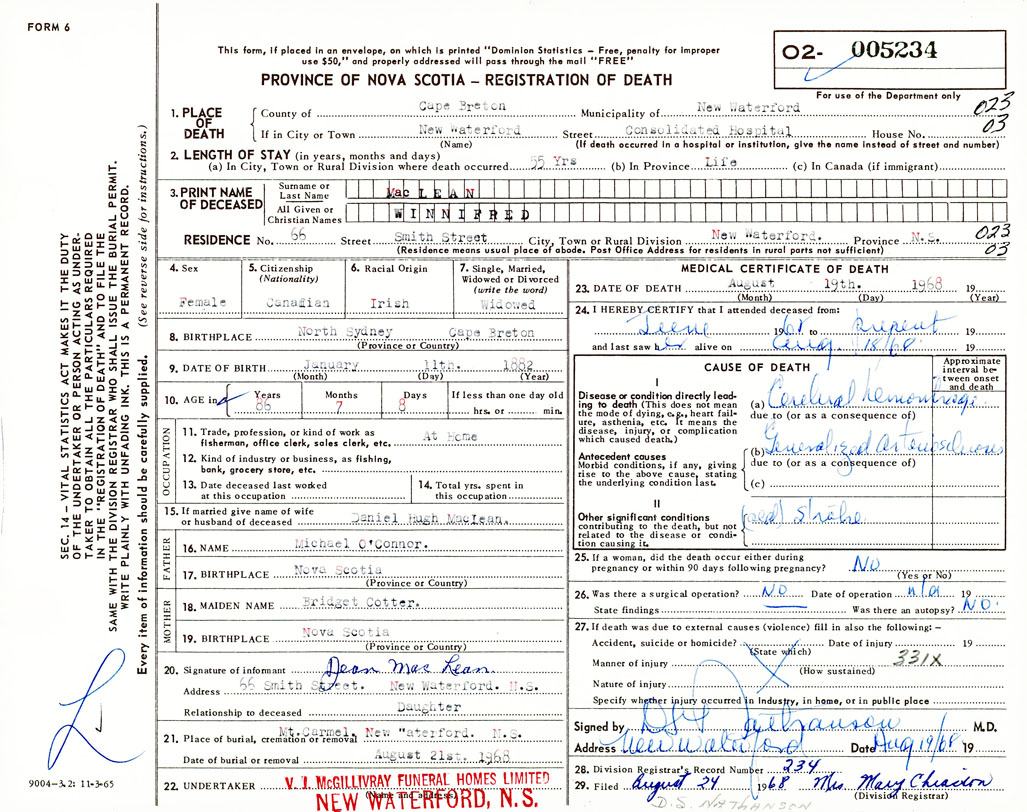 FORM 6
This form, if placed in an envelope, on which is printed "Dominion Statistics – Free, penalty for improper
use $50," and properly addressed will pass through the mail "FREE"
PROVINCE OF NOVA SCOTIA – REGISTRATION OF DEATH
O2- 005234
For use of the Department only
023
03
1. PLACE OF DEATH
County of Cape Breton Municipality of New Waterford
If in City or Town New Waterford Street Consolidated Hospital House No.
(Name) (If death occurred in a hospital or institution, give the name instead of street and number)
2. LENGTH OF STAY (in years, months and days)
(a) In City, Town or Rural Division where death occurred 55 Yrs (b) In Province Life (c) In Canada (if immigrant)
3. PRINT NAME OF DECEASED
Surname or Last Name MacLEAN
All Given or Christian Names WINNIFRED
RESIDENCE No. 66 Street Smith Street City, Town or Rural Division New Waterford. Province N.S.
(Residence means usual place of abode. Post Office Address for residents in rural parts not sufficient)
023
03
4. Sex
Female
5. Citizenship
(Nationality)
Canadian
6. Racial Origin
Irish
7. Single, Married,
Widowed or Divorced
(write the word)
Widowed
8. BIRTHPLACE North Sydney Cape Breton
(Province or Country)
9. DATE OF BIRTH January 11th. 1882
(Month) (Day) (Year)
10. AGE in Years Months Days If less than one day old
86 7 8 hrs. or min.
OCCUPATION
11. Trade, profession, or kind of work as
fisherman, office clerk, sales clerk, etc. At Home
12. Kind of industry or business, as fishing,
bank, grocery store, etc.
13. Date deceased last worked
at this occupation
14. Total yrs. spent in
this occupation
15. If married give name of wife
or husband of deceased Daniel Hugh MacLean.
FATHER
16. NAME Michael O'Connor.
17. BIRTHPLACE Nova Scotia
(Province or Country)
MOTHER
18. MAIDEN NAME Bridget Cotter.
19. BIRTHPLACE Nova Scotia
(Province or Country)
20. Signature of informant Dean Mac Lean
Address 66 Smith Street. New Waterford. N.S.
Relationship to deceased Daughter
21. Place of burial, cremation or removal Mt.Carmel, New "aterford. N.S.
Date of burial or removal August 21st. 1968
22. UNDERTAKER V. J. McGILLIVRAY FUNERAL HOMES LIMITED
(Name and address)
NEW WATERFORD, N.S.
MEDICAL CERTIFICATE OF DEATH
23. DATE OF DEATH August 19th. 1968 19
(Month) (Day) (Year)
24. I HEREBY CERTIFY that I attended deceased from:
1968 to 19
and last saw her alive on Aug. 18/68 19
CAUSE OF DEATH
Approximate
interval be-
tween onset
and death
I
Disease or condition directly lead-
ing to death (This does not mean
the mode of dying, e.g., heart fail-
ure, asthenia, etc. It means the
disease, injury, or complication
which caused death.)
(a) Cerebral hemorrhage
due to (or as a consequence of)
Antecedent causes
Morbid conditions, if any, giving
rise to the above cause, stating
the underlying condition last.
(b) Generalized arteriosclerosis
due to (or as a consequence of)
(c)
II
Other significant conditions
contributing to the death, but not
related to the disease or condi-
tion causing it.
(old) stroke
25. If a woman, did the death occur either during
pregnancy or within 90 days following pregnancy? NO
(Yes or No)
26. Was there a surgical operation? NO Date of operation n/a 19
State findings Was there an autopsy? NO.
27. If death was due to external causes (violence) fill in also the following: –
Accident, suicide or homicide? Date of injury 19
(State which)
Manner of injury 331X
(How sustained)
Nature of injury
Specify whether injury occurred in Industry, in home, or in public place
Signed by Nathanson M.D.
Address New Waterford Date Aug 19/68 19
28. Division Registrar's Record Number 234
29. Filed August 24 1968 Mrs. Mary
(Division Registrar)
D.S. NATHANSON
SEC. 14 – VITAL STATISTICS ACT MAKES IT THE DUTY
OF THE UNDERTAKER OR PERSON ACTING AS UNDER-
TAKER TO OBTAIN ALL THE PARTICULARS REQUIRED
IN THE "REGISTRATION OF DEATH" AND TO FILE THE
SAME WITH THE DIVISION REGISTRAR WHO SHALL ISSUE THE BURIAL PERMIT.
WRITE PLAINLY WITH UNFADING INK. THIS IS A PERMANENT RECORD.
Every item of information should be carefully supplied. (See reverse side for instructions.)
9004-3.2: 11-3-65